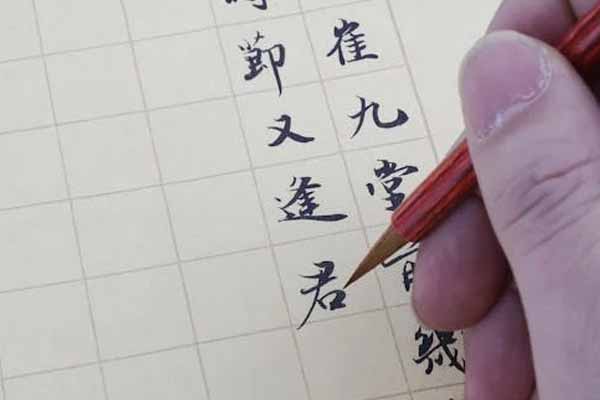 崔九堂前幾
節又逢君